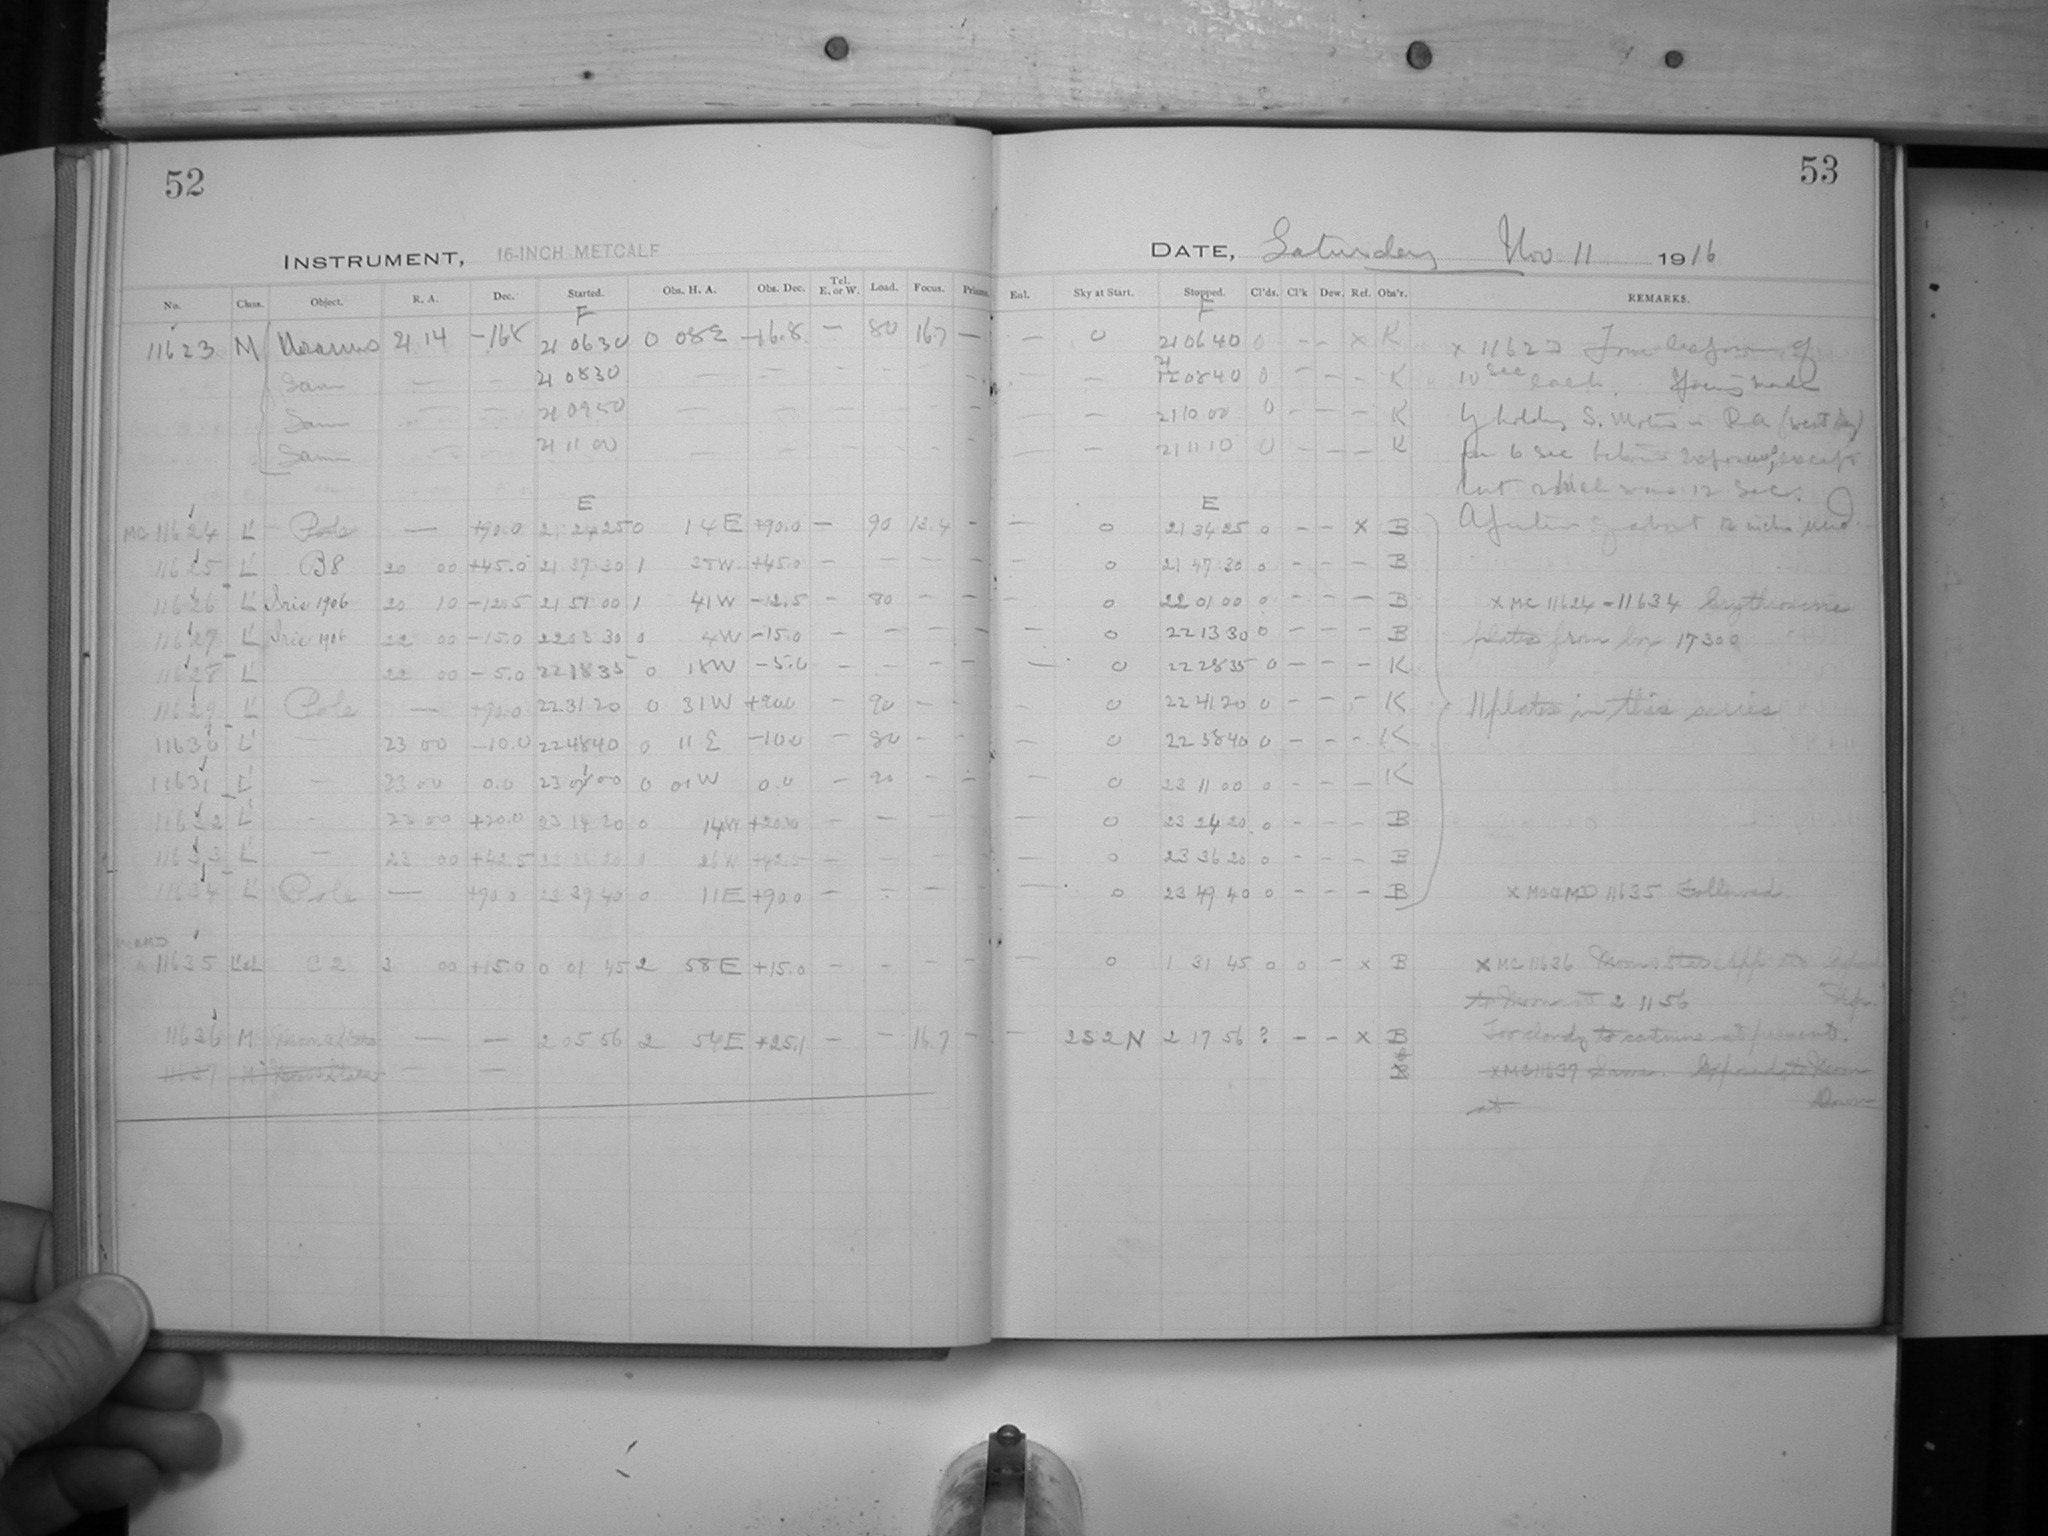 52
53
INSTRUMENT, 16-INCH METCALF
DATE, Saturday Nov 11 1916
No. Class. Object. R. A. Dec. Started. Obs. H. A. Obs. Dec. Tel. E. or W. Load. Focus. Prisms. Enl. Sky at Start. Stopped. Cl'ds. Cl'k Dew. Ref. Obs'r. REMARKS.
F F
11623 M Uranus 21 14 -16.8 21 06 30 0 08 E -16.8 - 80 16.7 - - 0 21 06 40 0 - - x K x 11623 exposures of
Same - - 21 08 30 - - - - - - - 21 08 40 0 - - - K 10 sec each. made
Same - - 21 09 50 - - - - - - - 21 10 00 0 - - - K by holding S. Motion in R.A. (west
Same 21 11 00 - - - - - - - 21 11 10 0 - - - K for 6 sec before exposures, except
last which was 12 sec.
E E
MC 11624 L' Pole - +90.0 21 24 25 0 14 E +90.0 - 90 13.4 - - 0 21 34 25 0 - - x B
11625 L' B8 20 00 +45.0 21 37 30 1 35 W +45.0 - - - - 0 21 47 30 0 - - - B
11626 L' Iris 1906 20 10 -12.5 21 51 00 1 41 W -12.5 - 80 - - 0 22 01 00 0 - - - B x MC 11624-11634 Erythrosine
11627 L' Iris 1906 22 00 -15.0 22 03 30 0 4 W -15.0 - - - - - 0 22 13 30 0 - - - B plates from box 17300
11628 L' 22 00 -5.0 22 18 35 0 18 W -5.0 - - - - - 0 22 28 35 0 - - - K
11629 L' Pole - +90.0 22 31 20 0 31 W +90.0 - 90 - - - 0 22 41 20 0 - - - K 11 plates in this series
11630 L' - 23 00 -10.0 22 48 40 0 11 E -10.0 - 80 - - - 0 22 58 40 0 - - - K
11631 L' - 23 00 0.0 23 01 00 0 01 W 0.0 - 90 - - - 0 23 11 00 0 - - - K
11632 L' - 23 00 +20.0 23 14 20 0 14 W +20.0 - - - - - 0 23 24 20 0 - - - B
11633 L' - 23 00 +42.5 23 26 20 0 26 W +42.5 - - - - - 0 23 36 20 0 - - - B
11634 L' Pole - +90.0 23 39 40 0 11 E +90.0 - - - - - 0 23 49 40 0 - - - B x MC & MD 11635 Followed.
MC & MD
11635 L' & L C 2 3 00 +15.0 0 01 45 2 58 E +15.0 - - - - - 0 1 31 45 0 0 - x B x MC 11636 Moon
to Moon at 2 11 56
11636 M - - 2 05 56 2 54 E +25.1 - - 16.7 - - 2S2N 2 17 56 ? - - x B Too cloudy to continue at present.
11637 M - - B x MC 11637 Same. Exposed to Moon
at